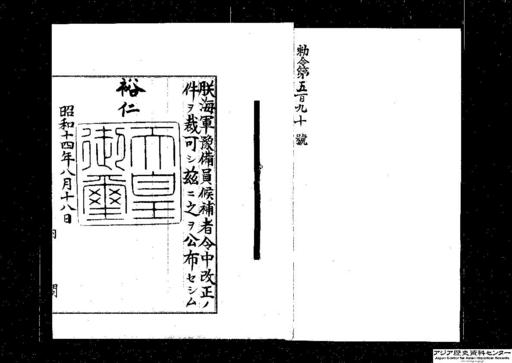 勅令第五百九十號
朕海軍豫備員候補者令中改正ノ
件ヲ裁可シ茲ニ之ヲ公布セシム
裕仁
天皇
御璽
昭和十四年八月十八日
内閣
アジア歴史資料センター
Japan Center for Asian Historical Records